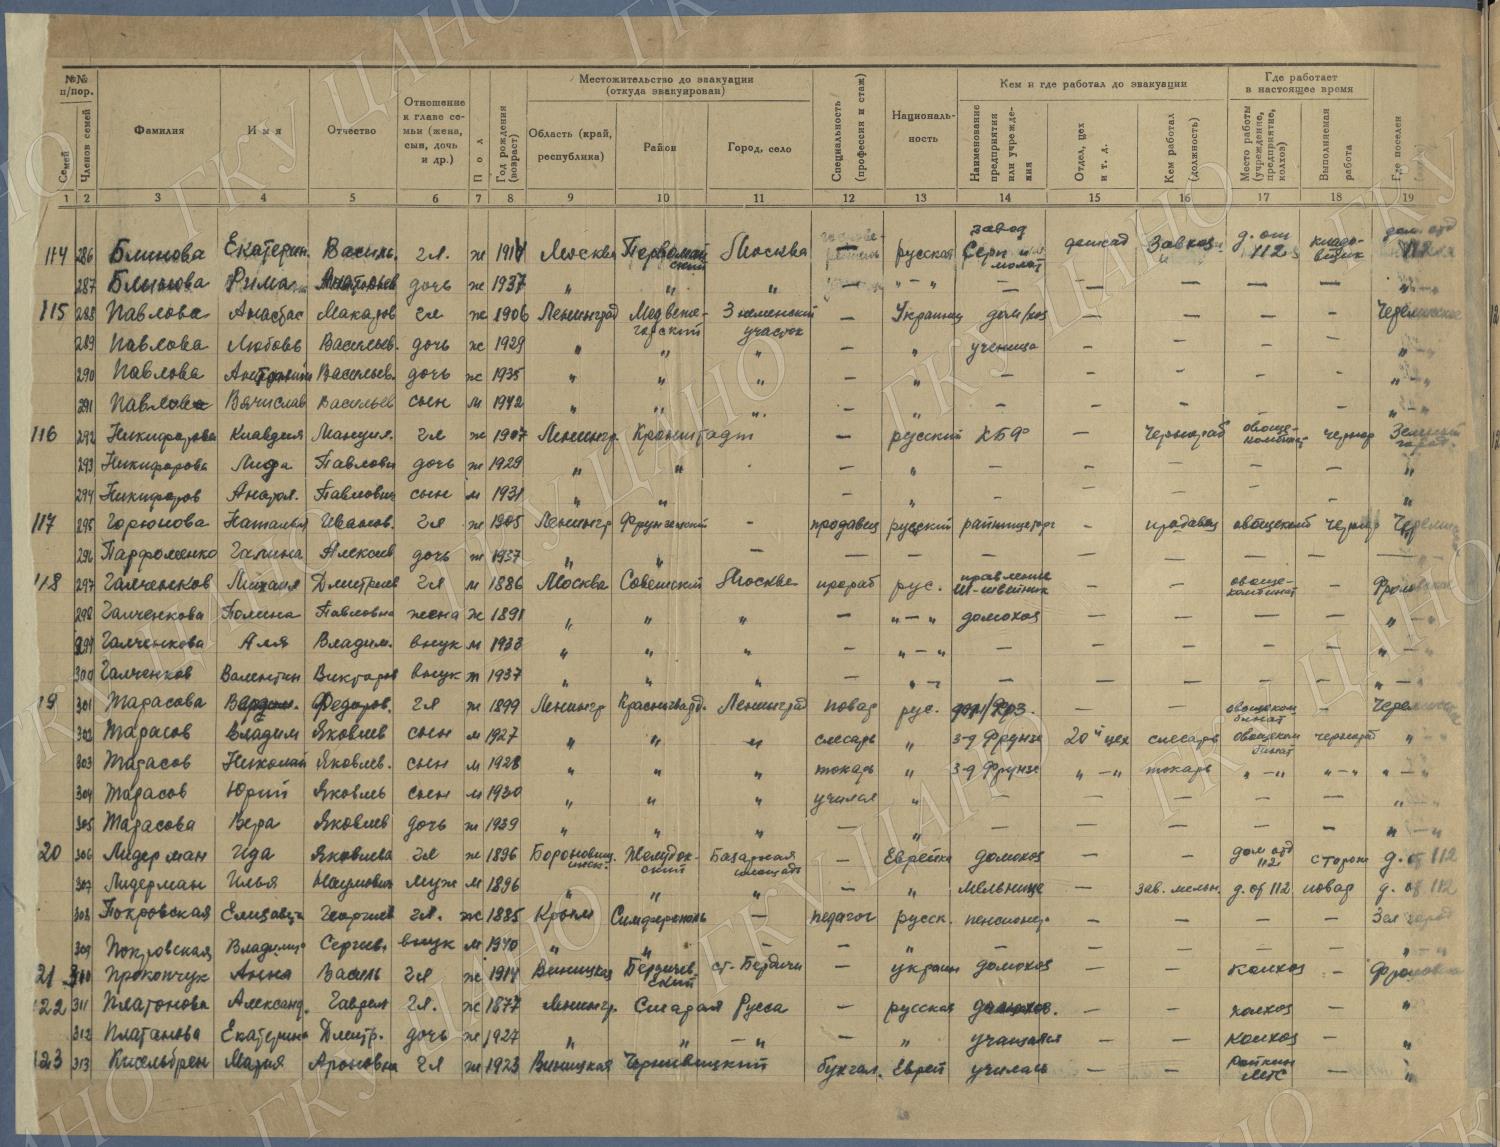 №№ п/пор.
Семей
Членов семей
Фамилия
Имя
Отчество
Отношение к главе семьи (жена, сын, дочь и др.)
Пол
Год рождения (возраст)
Местожительство до эвакуации (откуда эвакуирован)
Область (край, республика)
Район
Город, село
Специальность (профессия и стаж)
Националь-ность
Кем и где работал до эвакуации
Наименование предприятия или учрежде-ния
Отдел, цех и т. д.
Кем работал (должность)
Где работает в настоящее время
Место работы (учреждение, предприятие, колхоз)
Выполняемая работа
Где поселен
1 2 3 4 5 6 7 8 9 10 11 12 13 14 15 16 17 18 19
114 286 Блинова Екатерин. Василь. гл. ж 1914 Москва Первомайский Москва — русская завод Серп и молот детсад Завхоз д. от 112 кладовщик 112
287 Блинова Римма дочь ж 1937 „ „ „ — „ — „ — — — — —
115 288 Павлова Анастас Макаров гл ж 1906 Ленинград Медвежегорский участок — Украинц дом/хоз — — — —
289 Павлова Любовь Васильев. дочь ж 1929 „ „ „ — „ ученица — — — —
290 Павлова Васильев. дочь ж 1935 „ „ „ — „ — — — — —
291 Павлов Вячислав Васильев сын м 1942 „ „ „ — „ — — — — —
116 292 Никифорова Клавдия гл ж 1907 Ленингр. Кронштадт — русский КБФ — Чернораб овощекомбинат чернор
293 Никифорова Лида Павловн дочь ж 1929 „ „ — „ — — — — —
294 Никифоров Анатол. Павлович сын м 1931 „ „ — „ — — — — —
117 295 Горюнова Наталья Иванов. гл ж 1905 Ленингр Фрунзенский — продавец русский райпищеторг — продавец чернор
296 Парфоменко Галина Алексеев дочь ж 1937 „ „ — — — — — — — —
118 297 Галченков Михаил Дмитриев гл м 1886 Москва Советский Москва прораб рус. правление — — овощекомбинат —
298 Галченкова Полина Павловна жена ж 1891 „ „ „ — „ — „ домохоз — — — —
299 Галченкова Аля Владим. внук м 1933 „ „ „ — „ — „ — — — — —
300 Галченков Валентин Викторов внук м 1937 „ „ „ — „ — — — — — —
19 301 Тарасова Федоров. гл ж 1899 Ленингр Красногвард. Ленинград повар рус. — — —
302 Тарасов Владим Яковлев сын м 1927 „ „ „ слесарь „ з-д Фрунзе 20й цех слесарь чернораб „ — „
303 Тарасов Николай Яковлев. сын м 1928 „ „ „ токарь „ з-д Фрунзе „ — „ токарь „ — „ „ — „ „ — „
304 Тарасов Юрий Яковлев сын м 1930 „ „ „ учился „ — — — — — „ — „
305 Тарасова Вера Яковлев дочь ж 1939 „ „ „ — „ — — — — — „ — „
20 306 Лидерман Ида Яковлева гл ж 1896 Желудокский Базарная площадь — Еврейка домохоз — — 112 сторож д. от 112
307 Лидерман Илья Наумович муж м 1896 „ „ „ — „ Мельнице — зав. мельн. д. от 112 повар д. от 112
308 Покровская Елизавета Георгиев гл. ж 1885 Крым Симферополь — педагог русск. пенсионер — — — —
309 Покровская Владимир Сергеев. внук м 1940 „ „ — — „ — — — — —
21 310 Прокопчук Анна Василь гл ж 1914 Виницкая Бердичевский ст. Бердичи — украин домохоз — — колхоз —
122 311 Платонова Александ. Гаврил гл. ж 1877 Ленингр. Старая Русса — русская домохоз. — — колхоз — „
312 Платанова Екатерина Дмитр. дочь ж 1927 „ „ — „ — „ учащаяся — — колхоз — „
123 313 Кисельбрен Мария Ароновна гл ж 1923 Виницкая Черневицкий бухгал. Еврей училась — — МТС — „
ГКУ ЦАНО